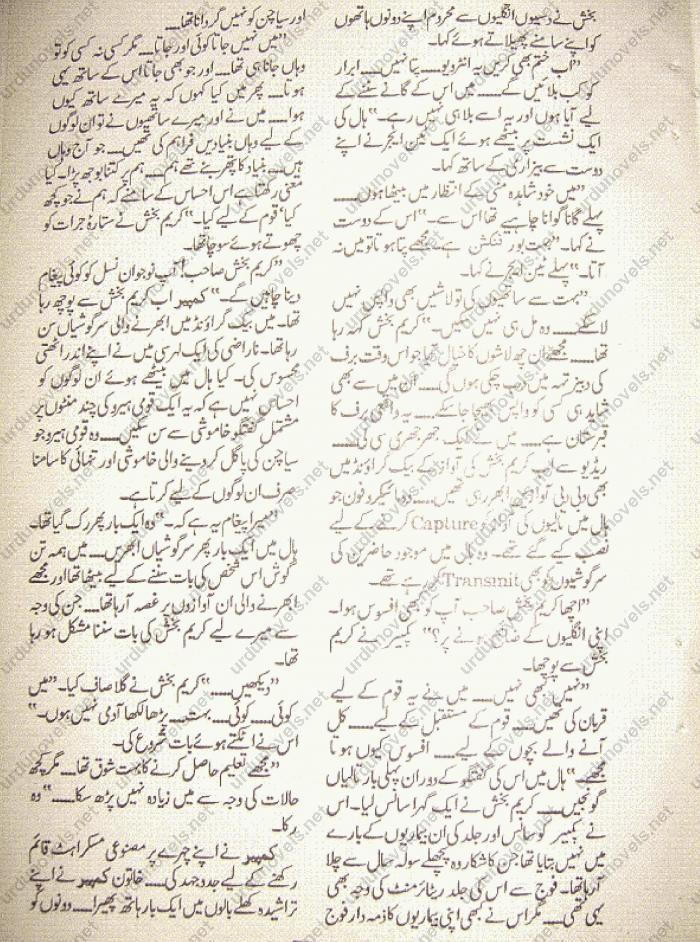 بخش نے دسیوں انگلیوں سے محروم اپنے دونوں ہاتھوں
کو اپنے سامنے پھیلاتے ہوئے کہا۔
"اب ختم بھی کریں یہ انٹرویو...... پتا نہیں...... ابرار
کو کب بلائیں گے...... میں اس کے گانے سننے کے
لیے آیا ہوں اور یہ اسے بلا ہی نہیں رہے۔" ہال کی
ایک نشست پر بیٹھے ہوئے ایک ٹین ایجر نے اپنے
دوست سے بیزاری کے ساتھ کہا۔
"میں خود شاہدہ منی کے انتظار میں بیٹھا ہوں......
پہلے گانا گوانا چاہیے تھا اس سے۔" اس کے دوست
نے کہا۔ "بہت بور فنکشن ہے...... مجھے پتا ہوتا تو میں نہ
آتا۔" پہلے ٹین ایجر نے کہا۔
"بہت سے ساتھیوں کی تو لاشیں بھی واپس نہیں
لا سکے...... وہ مل ہی نہیں سکیں۔" کریم بخش کہہ رہا
تھا...... مجھے ان چھ لاشوں کا خیال آیا تھا جو اس وقت برف
کی دبیز تہہ میں دب چکی ہوں گی...... ان میں سے بھی
شاید ہی کسی کو واپس بھیجا جا سکے...... یہ واقعی برف کا
قبرستان ہے...... میں نے ایک جھرجھری سی لی......
ریڈیو سے اب کریم بخش کی آواز کے بیک گراؤنڈ میں
بھی دبی دبی آوازیں ابھر رہی تھیں...... وہ مائیکروفون جو
ہال میں تالیوں کی آواز کو Capture کرنے کے لیے
نصب کیے گئے تھے۔ وہ ہال میں موجود حاضرین کی
سرگوشیوں کو بھی Transmit کر رہے تھے۔
"اچھا کریم بخش صاحب آپ کو کبھی افسوس ہوا۔
اپنی انگلیوں کے ضائع ہونے پر؟" کمپیئر نے کریم
بخش سے پوچھا۔
"نہیں کبھی نہیں...... میں نے یہ قوم کے لیے
قربان کی تھیں...... قوم کے مستقبل کے لیے...... کل
آنے والے بچوں کے لیے...... افسوس کیوں ہوتا
مجھے۔" ہال میں اس کی گفتگو کے دوران پہلی بار تالیاں
گونجیں...... کریم بخش نے ایک گہرا سانس لیا۔ اس
نے کمپیئر کو سانس اور جلد کی ان بیماریوں کے بارے
میں نہیں بتایا تھا جن کا شکار وہ پچھلے سولہ سال سے چلا
آ رہا تھا۔ فوج سے اس کی جلد ریٹائرمنٹ کی وجہ بھی
یہی تھی...... مگر اس نے کبھی اپنی بیماریوں کا ذمہ دار فوج
اور سیاچن کو نہیں گردانا تھا......
"میں نہیں جاتا کوئی اور جاتا...... مگر کسی نہ کسی کو تو
وہاں جانا ہی تھا...... اور جو بھی جاتا اس کے ساتھ یہی
ہوتا...... پھر میں کیا کہوں کہ یہ میرے ساتھ کیوں
ہوا...... میں نے اور میرے ساتھیوں نے تو ان لوگوں
کے لیے وہاں بنیادیں فراہم کی تھیں...... جو آج وہاں
ہیں...... بنیاد کا پتھر بنے تھے ہم...... ہم پر کتنا بوجھ پڑا۔ کیا
معنی رکھتا ہے اس احساس کے سامنے کہ ہم نے جو کچھ
کیا' قوم کے لیے کیا۔" کریم بخش نے ستارۂ جرات کو
چھوتے ہوئے سوچا تھا۔
"کریم بخش صاحب! آپ نوجوان نسل کو کوئی پیغام
دینا چاہیں گے۔" کمپیئر اب کریم بخش سے پوچھ رہا
تھا۔ میں بیک گراؤنڈ میں ابھرنے والی سرگوشیاں سن
رہا تھا۔ ناراضی کی ایک لہر سی میں نے اپنے اندر اٹھتی
محسوس کی۔ کیا ہال میں بیٹھے ہوئے ان لوگوں کو
احساس نہیں ہے کہ یہ ایک قومی ہیرو کی چند منٹوں پر
مشتمل گفتگو خاموشی سے سن سکیں...... وہ قومی ہیرو جو
سیاچن کی پاگل کر دینے والی خاموشی اور تنہائی کا سامنا
صرف ان لوگوں کے لیے کرتا ہے۔
"میرا پیغام یہ ہے کہ۔" وہ ایک بار پھر رک گیا تھا۔
ہال میں ایک بار پھر سرگوشیاں ابھریں...... میں ہمہ تن
گوش اس شخص کی بات سننے کے لیے بیٹھا تھا اور مجھے
ابھرنے والی ان آوازوں پر غصہ آ رہا تھا...... جن کی وجہ
سے میرے لیے کریم بخش کی بات سننا مشکل ہو رہا
تھا۔
"دیکھیں......" کریم بخش نے گلا صاف کیا۔ "میں
کوئی...... کوئی...... بہت...... پڑھا لکھا آدمی نہیں ہوں۔"
اس نے اٹکتے ہوئے بات شروع کی۔
"مجھے تعلیم حاصل کرنے کا بہت شوق تھا...... مگر کچھ
حالات کی وجہ سے میں زیادہ نہیں پڑھ سکا......" وہ
رکا۔
کمپیئر نے اپنے چہرے پر مصنوعی مسکراہٹ قائم
رکھنے کے لیے جدوجہد کی...... خاتون کمپیئر نے اپنے
تراشیدہ کھلے بالوں میں ایک بار ہاتھ پھیرا...... دونوں کو
urdunovels.net